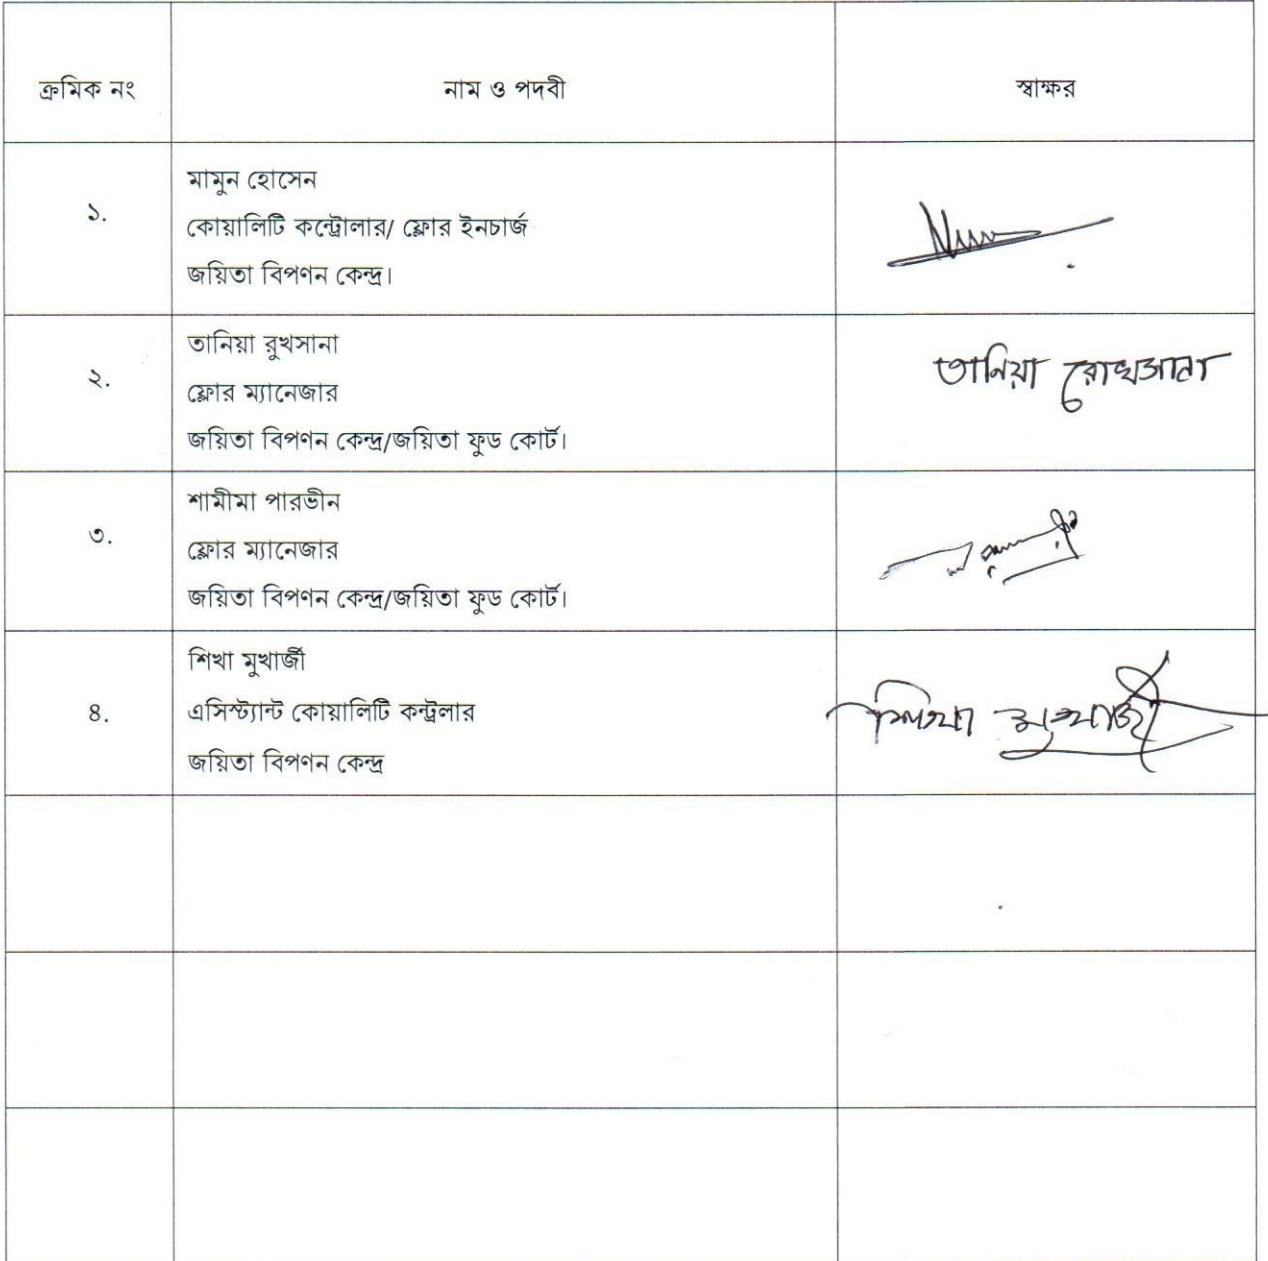 ক্রমিক নং নাম ও পদবী স্বাক্ষর
মামুন হোসেন
১.
কোয়ালিটি কন্ট্রোলার/ ফ্লোর ইনচার্জ
জয়িতা বিপণন কেন্দ্র।
তানিয়া রুখসানা
তানিয়া রোখসানা
২.
ফ্লোর ম্যানেজার
জয়িতা বিপণন কেন্দ্র/জয়িতা ফুড কোর্ট।
শামীমা পারভীন
৩.
ফ্লোর ম্যানেজার
জয়িতা বিপণন কেন্দ্র/জয়িতা ফুড কোর্ট।
শিখা মুখার্জী
৪.
এসিস্ট্যান্ট কোয়ালিটি কন্ট্রলার
শিখা মুখার্জী
জয়িতা বিপণন কেন্দ্র